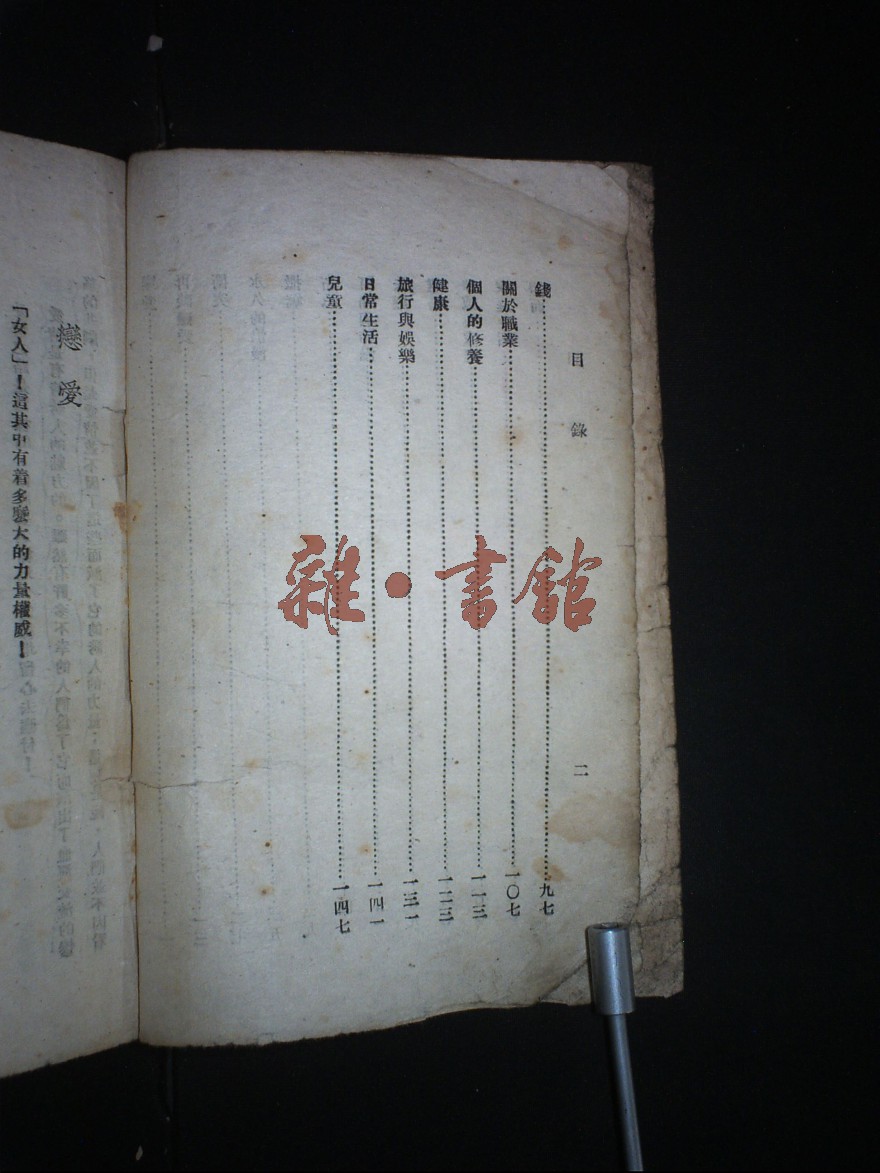 目錄
二
錢九七
關於職業一〇七
個人的修養一一三
健康一二三
旅行與娛樂一三一
日常生活一四一
兒童一四七
雜·書館
戀愛
「女人」！這其中有着多麼大的力量權威！